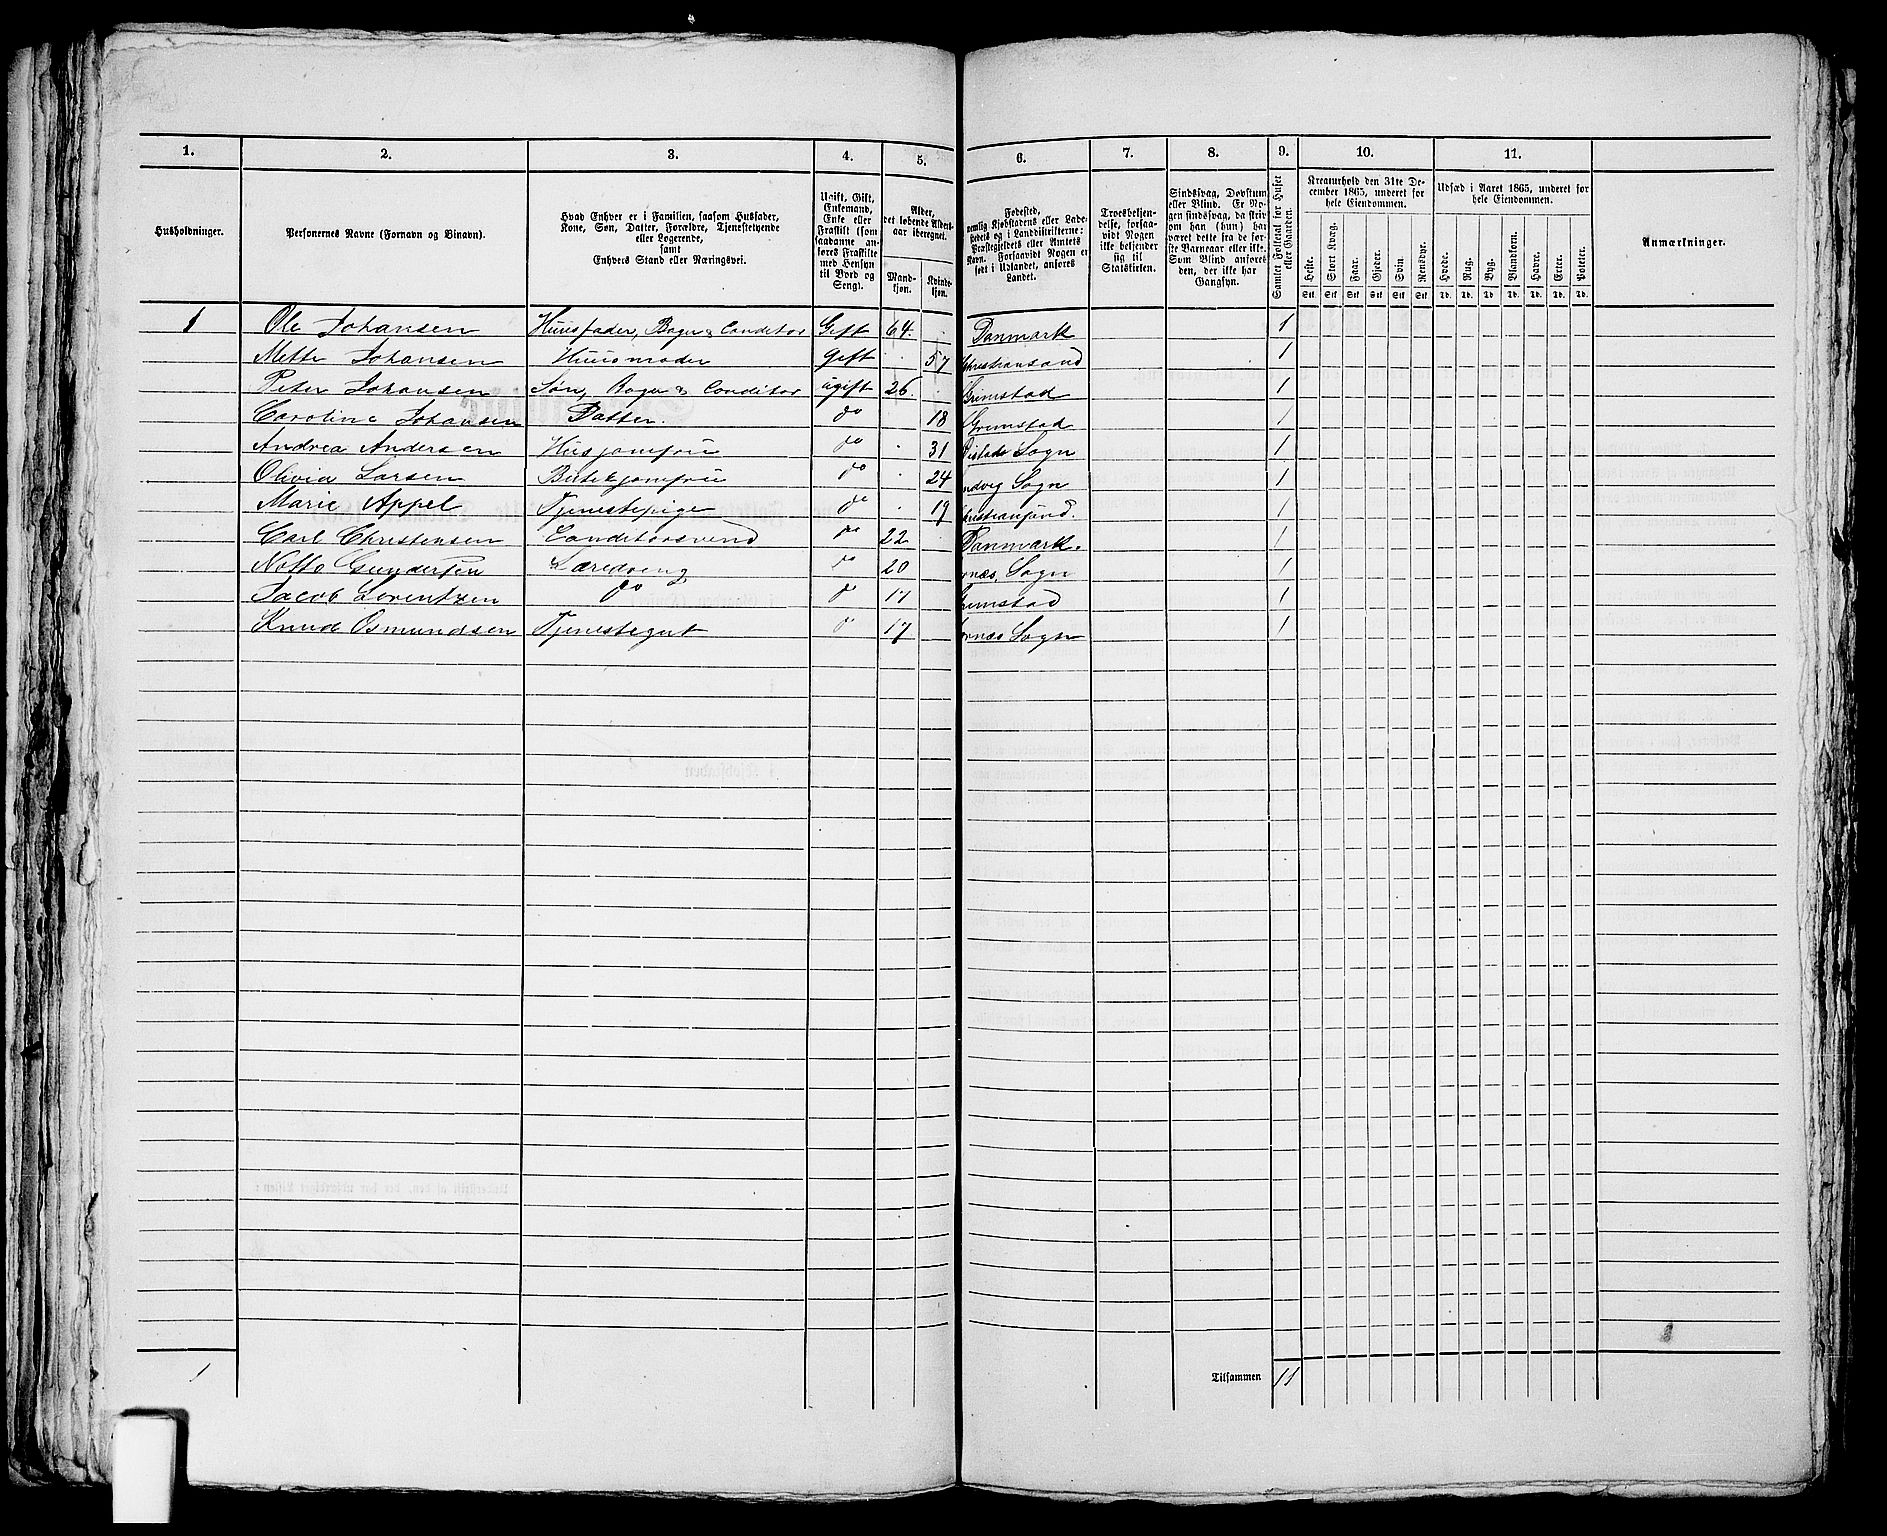 1. 2. 3. 4. 5. 6. 7. 8. 9. 10. 11.
Husholdninger.
Personernes Navne (Fornavn og Binavn).
Hvad Enhver er i Familien, saasom Husfader,
Kone, Søn, Datter, Forældre, Tjenestetyende
eller Logerende,
samt
Enhvers Stand eller Næringsvei.
Ugift, Gift,
Enkemand,
Enke eller
Fraskilt (som
saadanne an-
føres Fraskilte
med Hensyn
til Bord og
Seng).
Alder,
det løbende Alders-
aar iberegnet.
Mand-
kjøn.
Kvinde-
kjøn.
Fødested,
nemlig Kjøbstadens eller Lade-
stedets og i Landdistrikterne:
Præstegjeldets eller Amtets
Navn. Forsaavidt Nogen er
født i Udlandet, anføres
Landet.
Troesbekjen-
delse, forsaa-
vidt Nogen
ikke bekjender
sig til
Statskirken.
Sindssvag, Døvstum
eller Blind. Er No-
gen sindssvag, da skriv
om han (hun) har
været dette fra de før-
ste Barneaar eller ikke.
Som Blind anføres
den, der ikke har
Gangsyn.
Samlet Folketal for Huset
eller Gaarden.
Kreaturhold den 31te De-
cember 1865, underet for
hele Eiendommen.
Heste. Stort Kvæg. Faar. Gjeder. Svin Rensdyr.
Stk. Stk. Stk. Stk. Stk. Stk.
Udsæd i Aaret 1865, underet for
hele Eiendommen.
Hvede. Rug. Byg. Blandkorn. Havre. Erter. Poteter.
Td. Td. Td. Td. Td. Td. Td.
Anmærkninger.
1 Ole Johansen Huusfader, Bager & Conditor Gift 64. . Danmark 1
Mette Johansen Huusmoder Gift . 57 Christiansand 1
Peter Johansen Søn, Bager & Conditor ugift 26. . Grimstad 1
Caroline Johansen Datter. do . 18 Grimstad 1
Andrea Andersen Husjomfru do . 31 Øistads Sogn 1
Olivia Larsen Butikjomfru do . 24 Sogn 1
Marie Appel Tjenestepige do . 19 Christiansand. 1
Carl Christensen Conditorsvend do 22 . Danmark. 1
Notto Gundersen Læredreng do 20 Sogn 1
Jacob Lorentzen do do 17 Grimstad 1
Knud Osmundsen Tjenestegut do 17 Sogn 1
1
Tilsammen 11